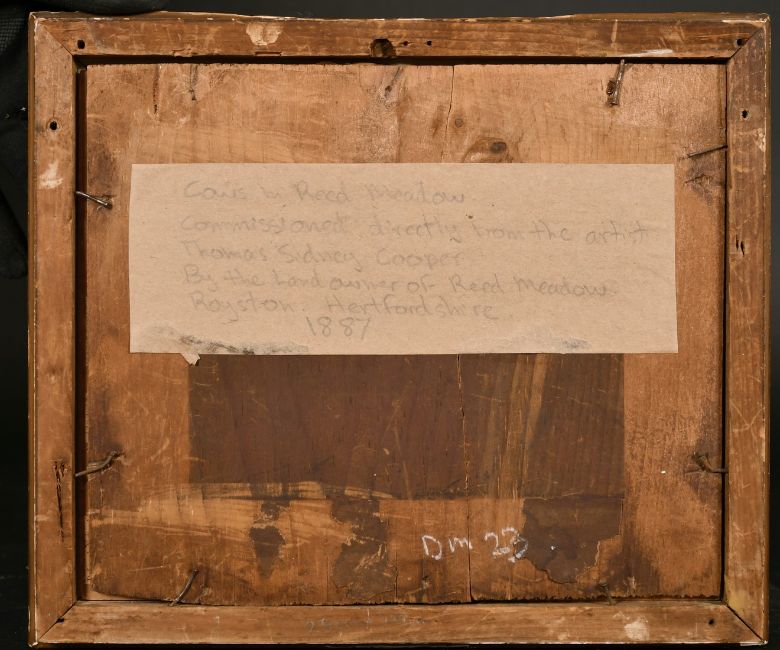 Cows in Reed Meadow
Commissioned directly from the artist
Thomas Sidney Cooper
By the Land owner of Reed Meadow.
Royston. Hertfordshire
1887
Dm 23